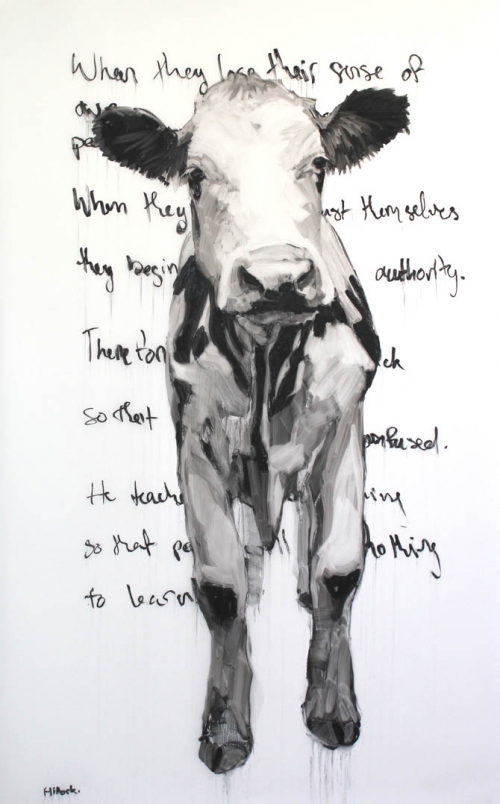 When they lose their sense of
awe
pe
When they ust themselves
they begin authority.
Therefor ck
so that confused.
He teache ing
so that pe ll nothing
to learn
Hillock.